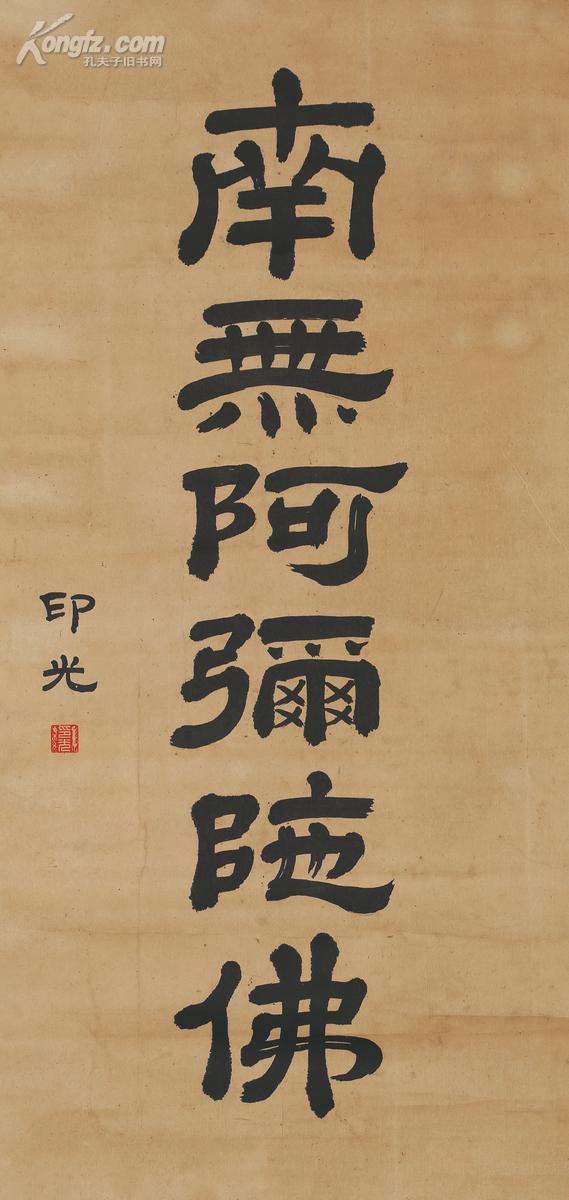 Kongfz.com
孔夫子旧书网
南無阿彌陁佛
印光